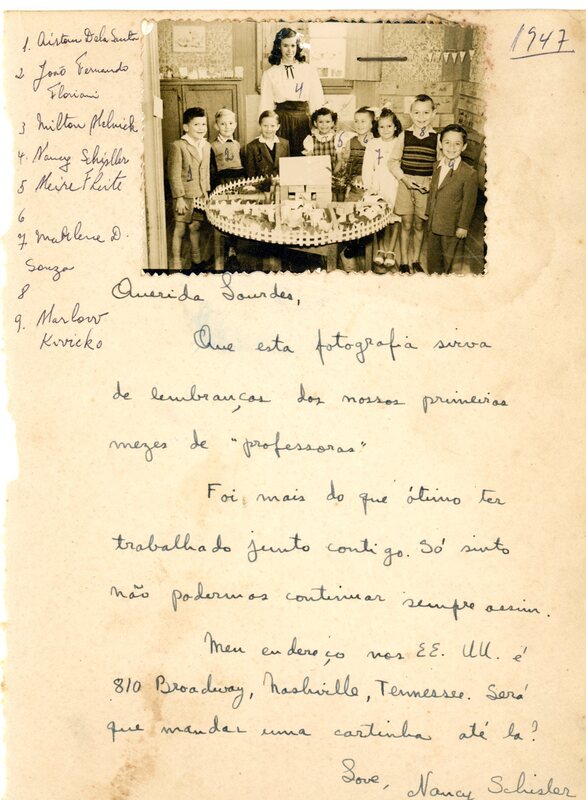 1947
1. Aristom Dela Senta
2 João Fernando
Floriani
3 Milton Melnick
4. Nancy Schisler
5 Meire Fleite
6
7 Madilene D.
Souza
8
9. Marlow
Kivicko
4
2
6
7
8
9
Querida Lourdes,
Que esta fotografia sirva
de lembranças dos nossos primeiros
mezes de "professoras"
Foi mais do que ótimo ter
trabalhado junto contigo. Só sinto
não podermos continuar sempre assim.
Meu endereço nos EE. UU. é
810 Broadway, Nashville, Tennessee. Será
que mandas uma cartinha até lá?
Love, Nancy Schisler